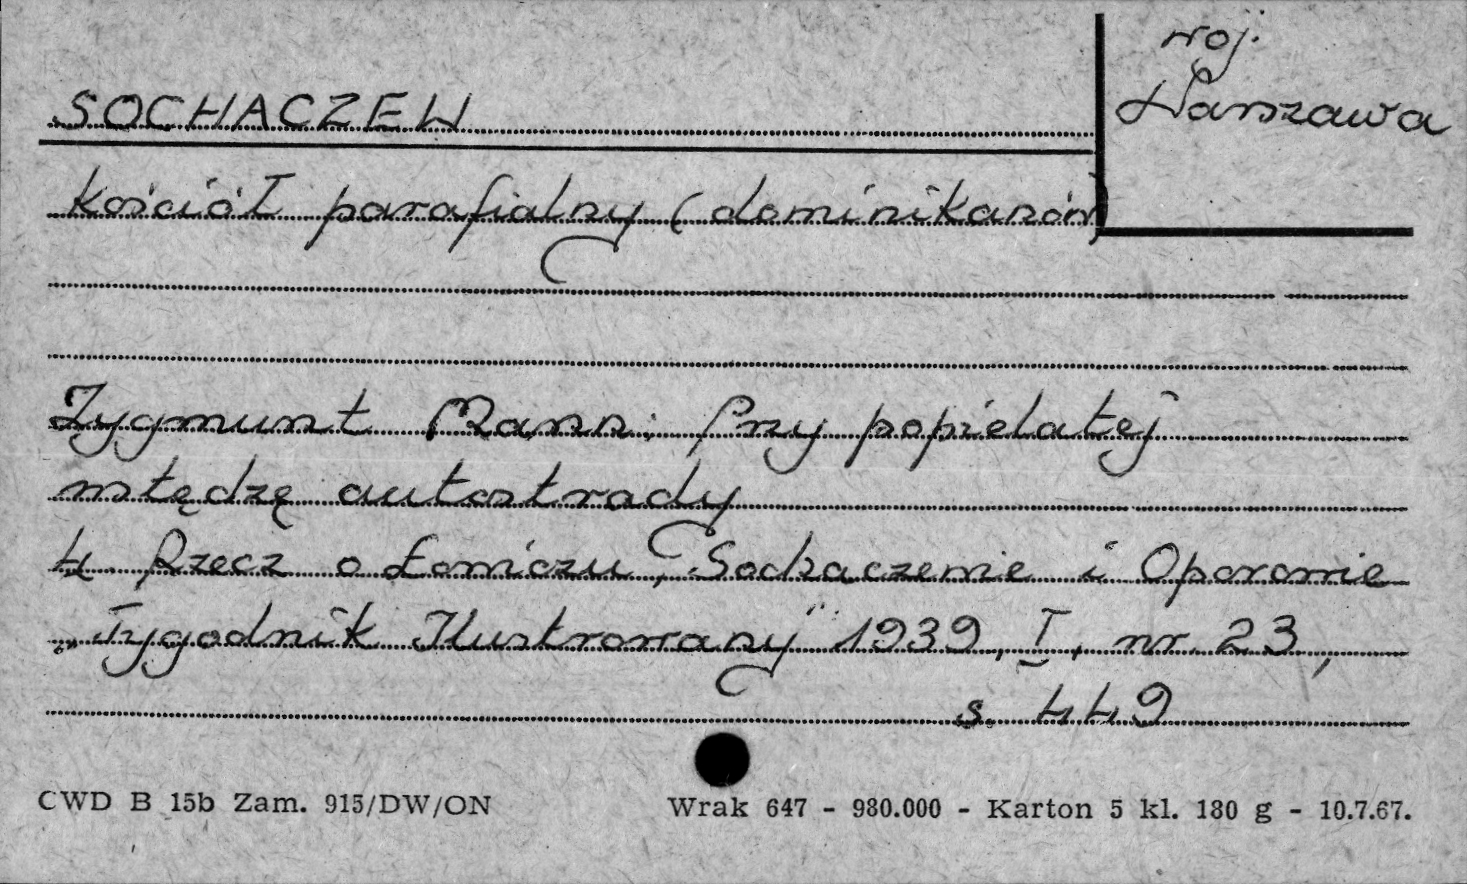 woj.
Warszawa
SOCHACZEW
Kościół parafialny (dominikanów)
Zygmunt Mann: Przy popielatej
wstędzę autostrady
4 Rzecz o Łowiczu, Sochaczewie i Oporowie
"Tygodnik Ilustrowany" 1939, I, nr. 23,
s. 449
CWD B 15b Zam. 915/DW/ON
Wrak 647 - 980.000 - Karton 5 kl. 180 g - 10.7.67.